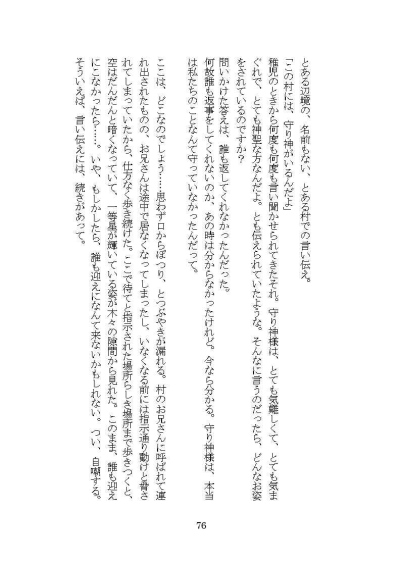 とある辺境の、名前もない、とある村での言い伝え。
「この村には、守り神がいるんだよ」
稚児のときから何度も何度も言い聞かせられてきたそれ。守り神様は、とても気難しくて、とても気ま
ぐれで、とても神聖な方なんだよ。とも伝えられていたような。そんなに言うのだったら、どんなお姿
をされているのですか?
問いかけた答えは、誰も返してくれなかったんだった。
何故誰も返事をしてくれないのか、あの時は分からなかったけれど。今なら分かる。守り神様は、本当
は私たちのことなんて守っていなかったんだって。
ここは、どこなのでしょう……思わず口からぽつり、とつぶやきが漏れる。村のお兄さんに呼ばれて連
れ出されたものの、お兄さんは途中で居なくなってしまったし、いなくなる前には指示通り動けと脅さ
れてしまっていたから、仕方なく歩き続けた。ここで待てと指示された場所らしき場所まで歩きつくと、
空はだんだんと暗くなっていて、一等星が輝いている姿が木々の隙間から見れた。このまま、誰も迎え
にこなかったら……。いや、もしかしたら、誰も迎えになんて来ないかもしれない。つい、自嘲する。
そういえば、言い伝えには、続きがあって。
76